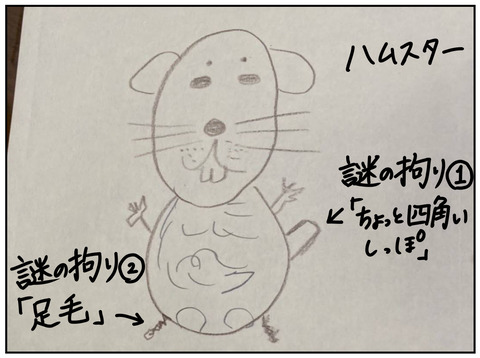 ハムスター
謎の拘り①
←「ちょっと四角い
しっぽ」
謎の拘り②
「足毛」→